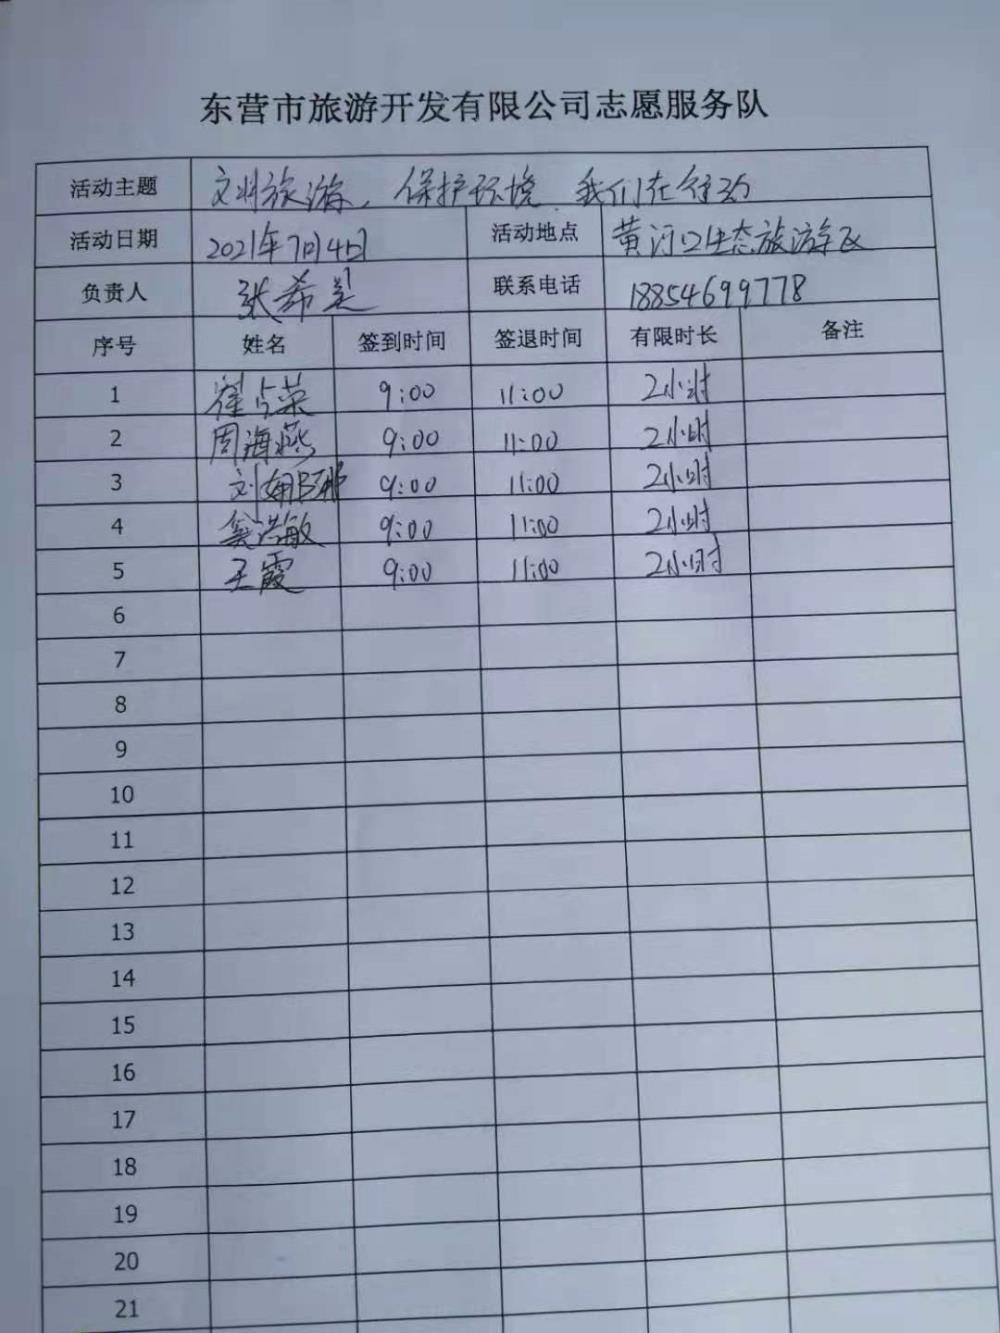 东营市旅游开发有限公司志愿服务队
活动主题 文明旅游，保护环境，我们在行动
活动日期 2021年7月4日 活动地点 黄河口生态旅游区
负责人 张希 联系电话 18854699778
序号 姓名 签到时间 签退时间 有限时长 备注
1 崔占荣 9:00 11:00 2小时
2 周海燕 9:00 11:00 2小时
3 刘娜娜 9:00 11:00 2小时
4 窦洪敏 9:00 11:00 2小时
5 王霞 9:00 11:00 2小时
6
7
8
9
10
11
12
13
14
15
16
17
18
19
20
21